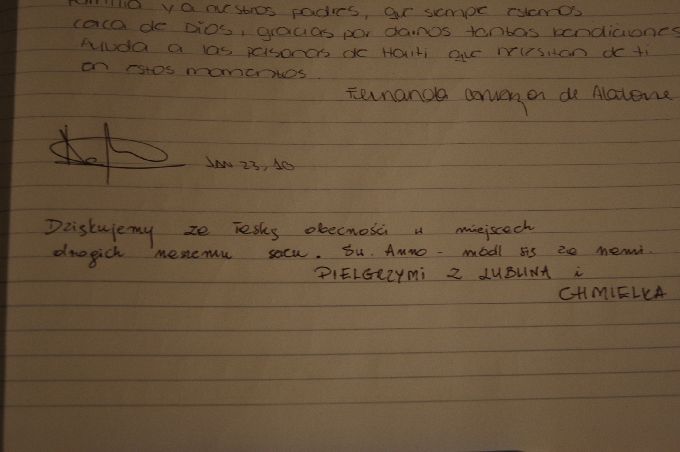 familia y a nuestros padres, que siempre estemos
cerca de Dios, gracias por darnos tantas bendiciones
Ayuda a las personas de Haiti que necesitan de ti
en estos momentos.
Fernanda de Alatorre
JAN 23, 10
Dziękujemy za łaskę obecności w miejscach
drogich naszemu sercu. Św. Anno - módl się za nami.
PIELGRZYMI Z LUBLINA i
CHMIELKA